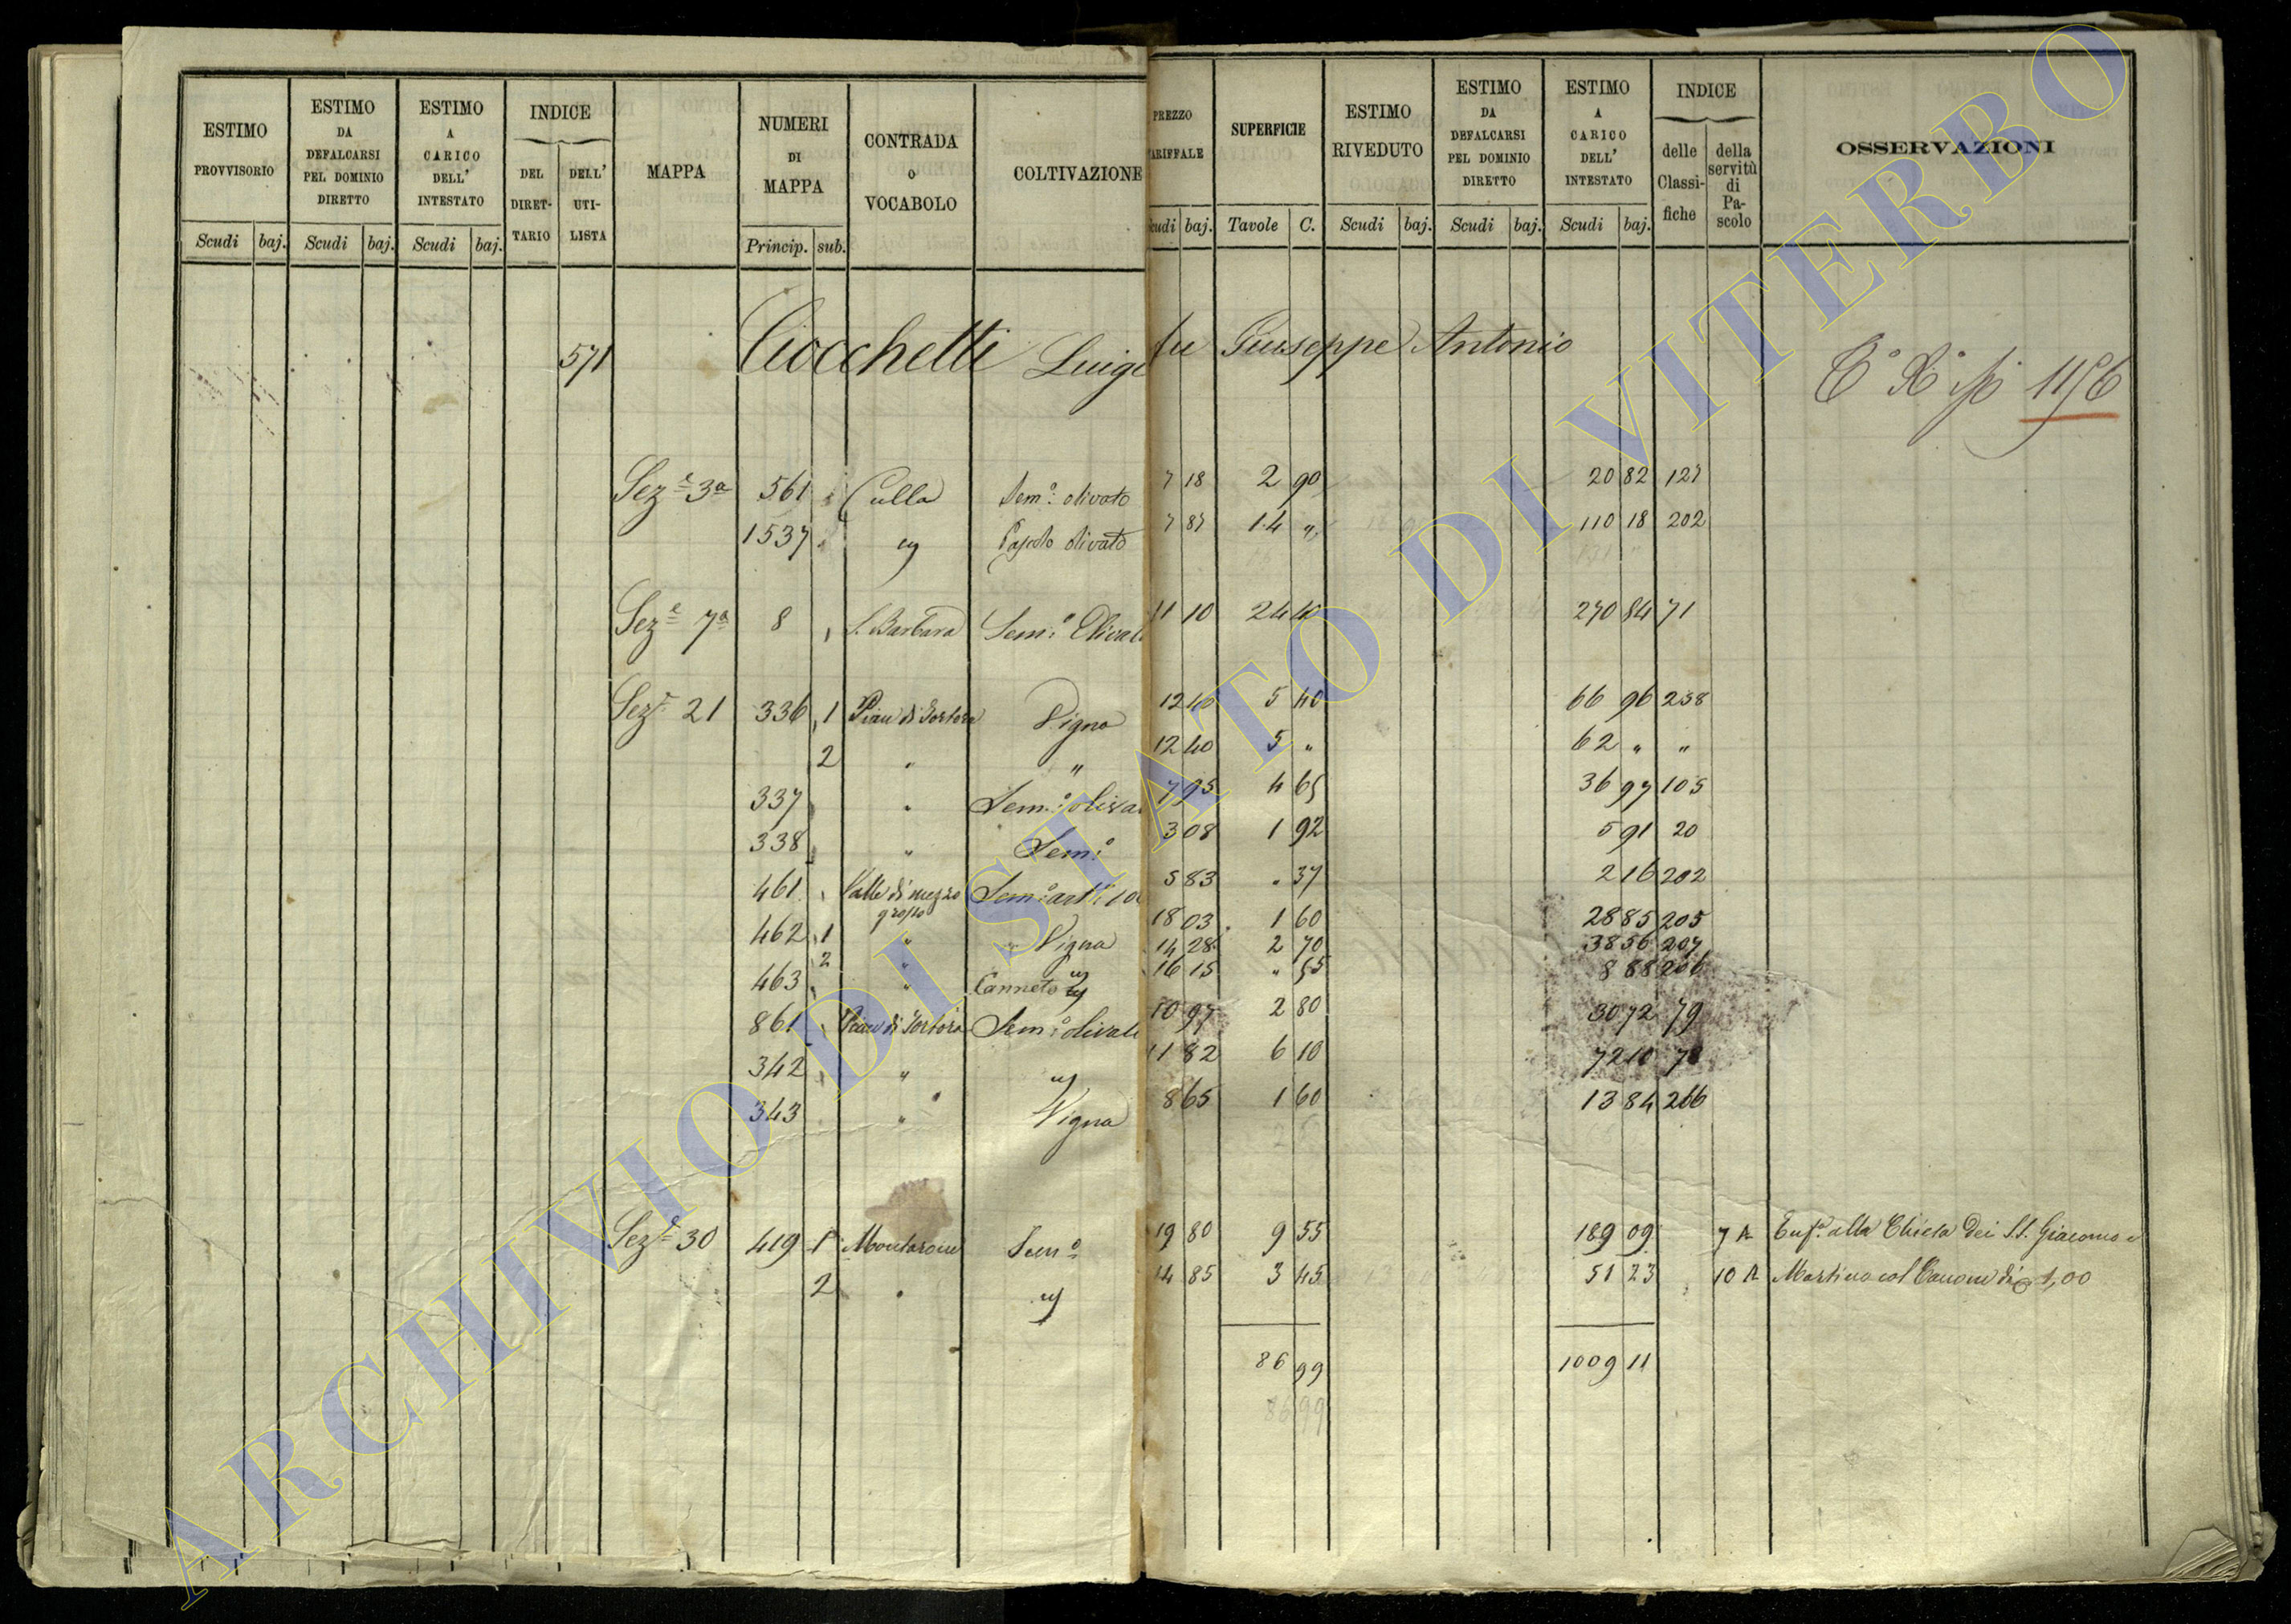 ESTIMO PROVVISORIO
ESTIMO DA DEFALCARSI PEL DOMINIO DIRETTO
ESTIMO A CARICO DELL' INTESTATO
INDICE
DEL DIRETTARIO
DELL' UTILISTA
MAPPA
NUMERI DI MAPPA
CONTRADA O VOCABOLO
COLTIVAZIONE
PREZZO TARIFFALE
SUPERFICIE
ESTIMO RIVEDUTO
ESTIMO DA DEFALCARSI PEL DOMINIO DIRETTO
ESTIMO A CARICO DELL' INTESTATO
INDICE
delle Classifiche
della servitù di Pascolo
OSSERVAZIONI
Scudi baj. Scudi baj. Scudi baj. Princip. sub. Scudi baj. Tavole C. Scudi baj. Scudi baj. Scudi baj.
571 Ciocchetti Luigi fu Giuseppe Antonio
1156
Sez.e 3a 561 Culla Sem.o olivato 7 18 2 90 20 82 127
1537 " Pascolo olivato 7 87 14 " 110 18 202
Sez.e 7a 8 S. Barbara Sem.o Olivato 11 10 24 40 270 84 71
Sez.e 21 336 1 Pian di Tortora Vigna 12 40 5 40 66 96 238
2 " " 12 40 5 " 62 " "
337 " Sem.o olivato 7 95 4 65 36 97 105
338 " Sem.o 3 08 1 92 5 91 20
461 Valle di mezzo grosso Sem.o 5 83 " 37 2 16 202
462 1 " Vigna 18 03 1 60 28 85 205
2 " " 14 28 2 70 38 56 207
463 " Canneto 16 15 " 55 8 88 206
861 Pian di Tortora Sem.o olivato 10 97 2 80 30 72 79
342 " " 11 82 6 10 72 10 78
343 " Vigna 8 65 1 60 13 84 266
Sez.e 30 419 1 Montarone Sem.o 19 80 9 55 189 09 7 A Enf.a alla Chiesa dei S.S. Giacomo e
2 " " 14 85 3 45 51 23 10 A Martino col Canone di 1,00
86 99 1009 11
86 99
ARCHIVIO DI STATO DI VITERBO